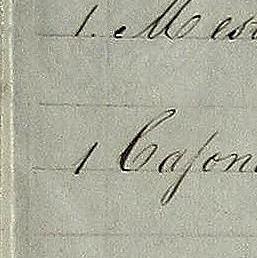 1. Mes
1 Cajon